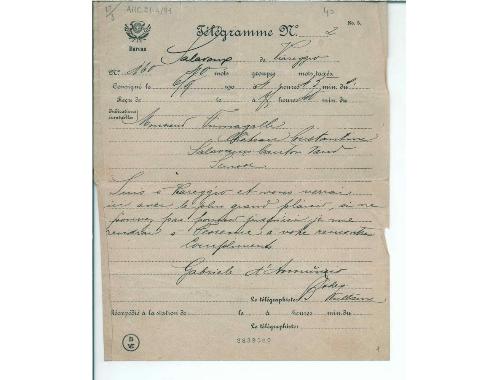 AMC 21-4/91
Télégramme Nº 2
No. 5.
Bureau
Salavaux de Viareggio
Nº 160 40 mots groupes mots taxés
Consigné le 6/9 190 à heures min. du
Reçu de le à heures min. du
Indications
éventuelles
Monsieur Fumagalli
Château Constantine
Salavaux Canton Vaud
Suisse
Suis à Viareggio et vous verrai
ici avec le plus grand plaisir, si ne
pouvez pas pousser jusqu'ici je me
rendrai à Florence à votre rencontre
Compliments
Gabriele d'Annunzio
Le télégraphiste:
Réexpédié à la station de le à heures min. du
Le télégraphiste:
B
VI